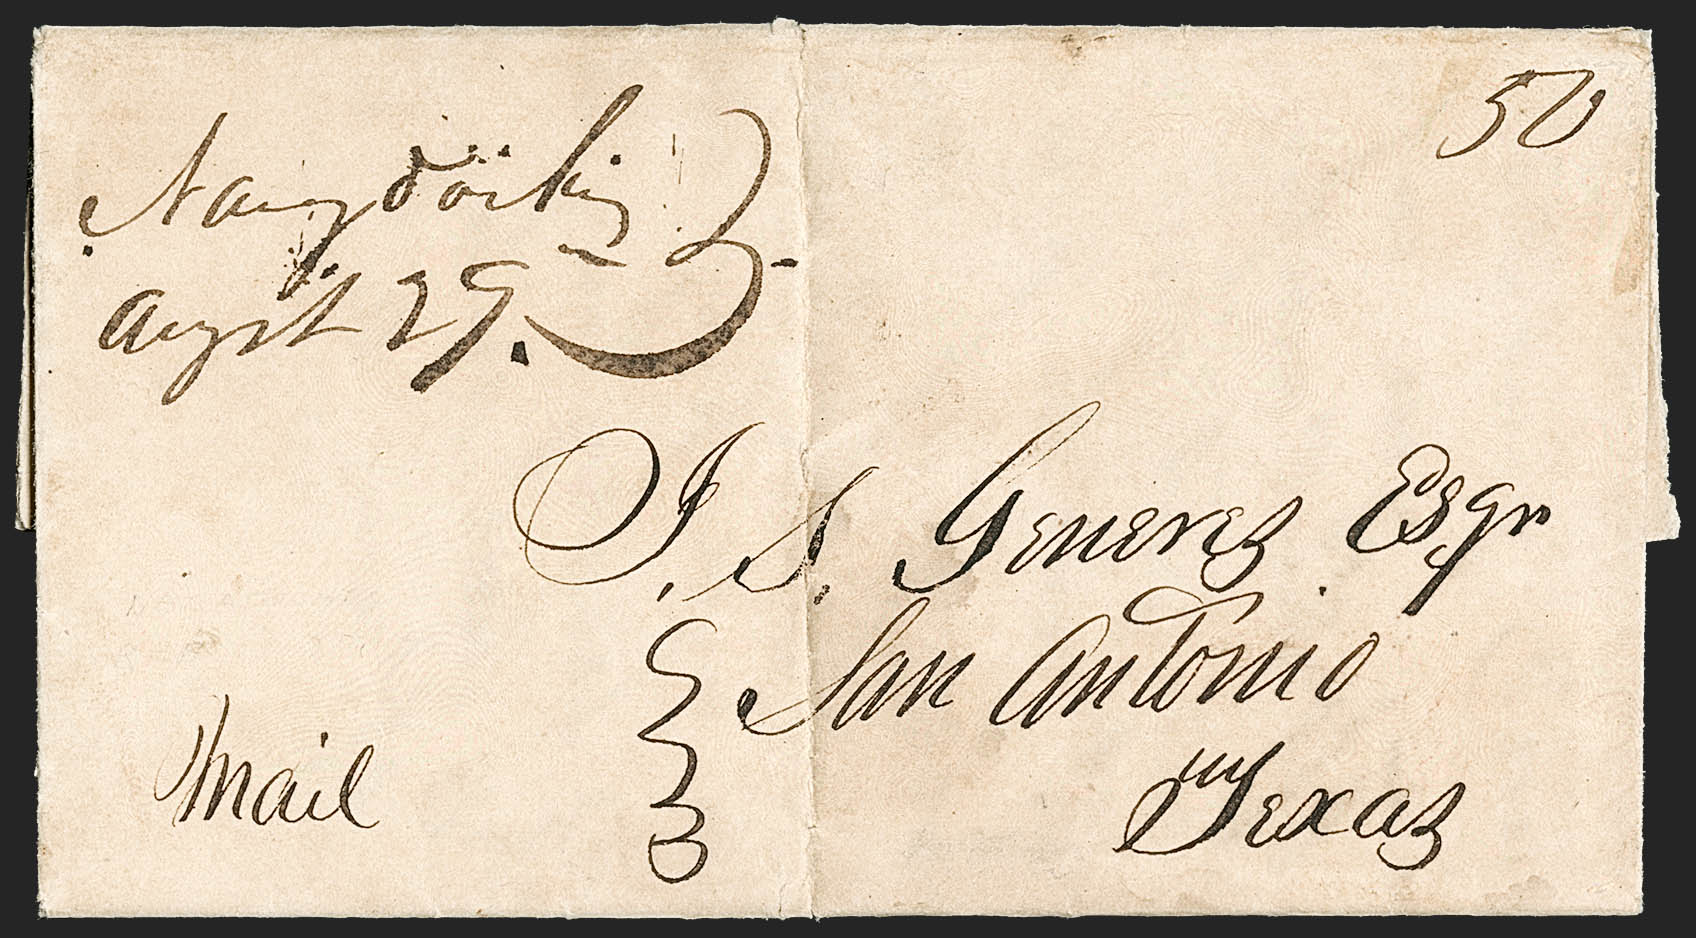 50
Nacogdoches
August 29.
I. S. Generes Esqr
San Antonio
Texas
Mail